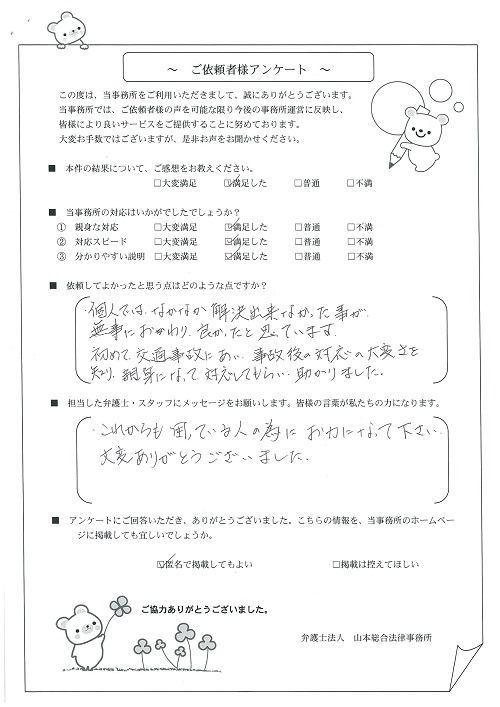 ～ ご依頼者様アンケート ～
この度は、当事務所をご利用いただきまして、誠にありがとうございます。
当事務所では、ご依頼者様の声を可能な限り今後の事務所運営に反映し、
皆様により良いサービスをご提供することに努めております。
大変お手数ではございますが、是非お声をお聞かせください。
■ 本件の結果について、ご感想をお教えください。
□大変満足 ☑満足した □普通 □不満
■ 当事務所の対応はいかがでしたでしょうか？
① 親身な対応 □大変満足 ☑満足した □普通 □不満
② 対応スピード □大変満足 ☑満足した □普通 □不満
③ 分かりやすい説明 □大変満足 ☑満足した □普通 □不満
■ 依頼してよかったと思う点はどのような点ですか？
・個人では、なかなか解決出来なかった事が、
無事におわり、良かったと思っています。
初めて交通事故にあい、事故後の対応の大変さを
知り、親身になって対応してもらい、助かりました。
■ 担当した弁護士・スタッフにメッセージをお願いします。皆様の言葉が私たちの力になります。
・これからも困っている人の為にお力になって下さい。
大変ありがとうございました。
■ アンケートにご回答いただき、ありがとうございました。こちらの情報を、当事務所のホームペー
ジに掲載しても宜しいでしょうか。
☑匿名で掲載してもよい □掲載は控えてほしい
ご協力ありがとうございました。
弁護士法人 山本総合法律事務所